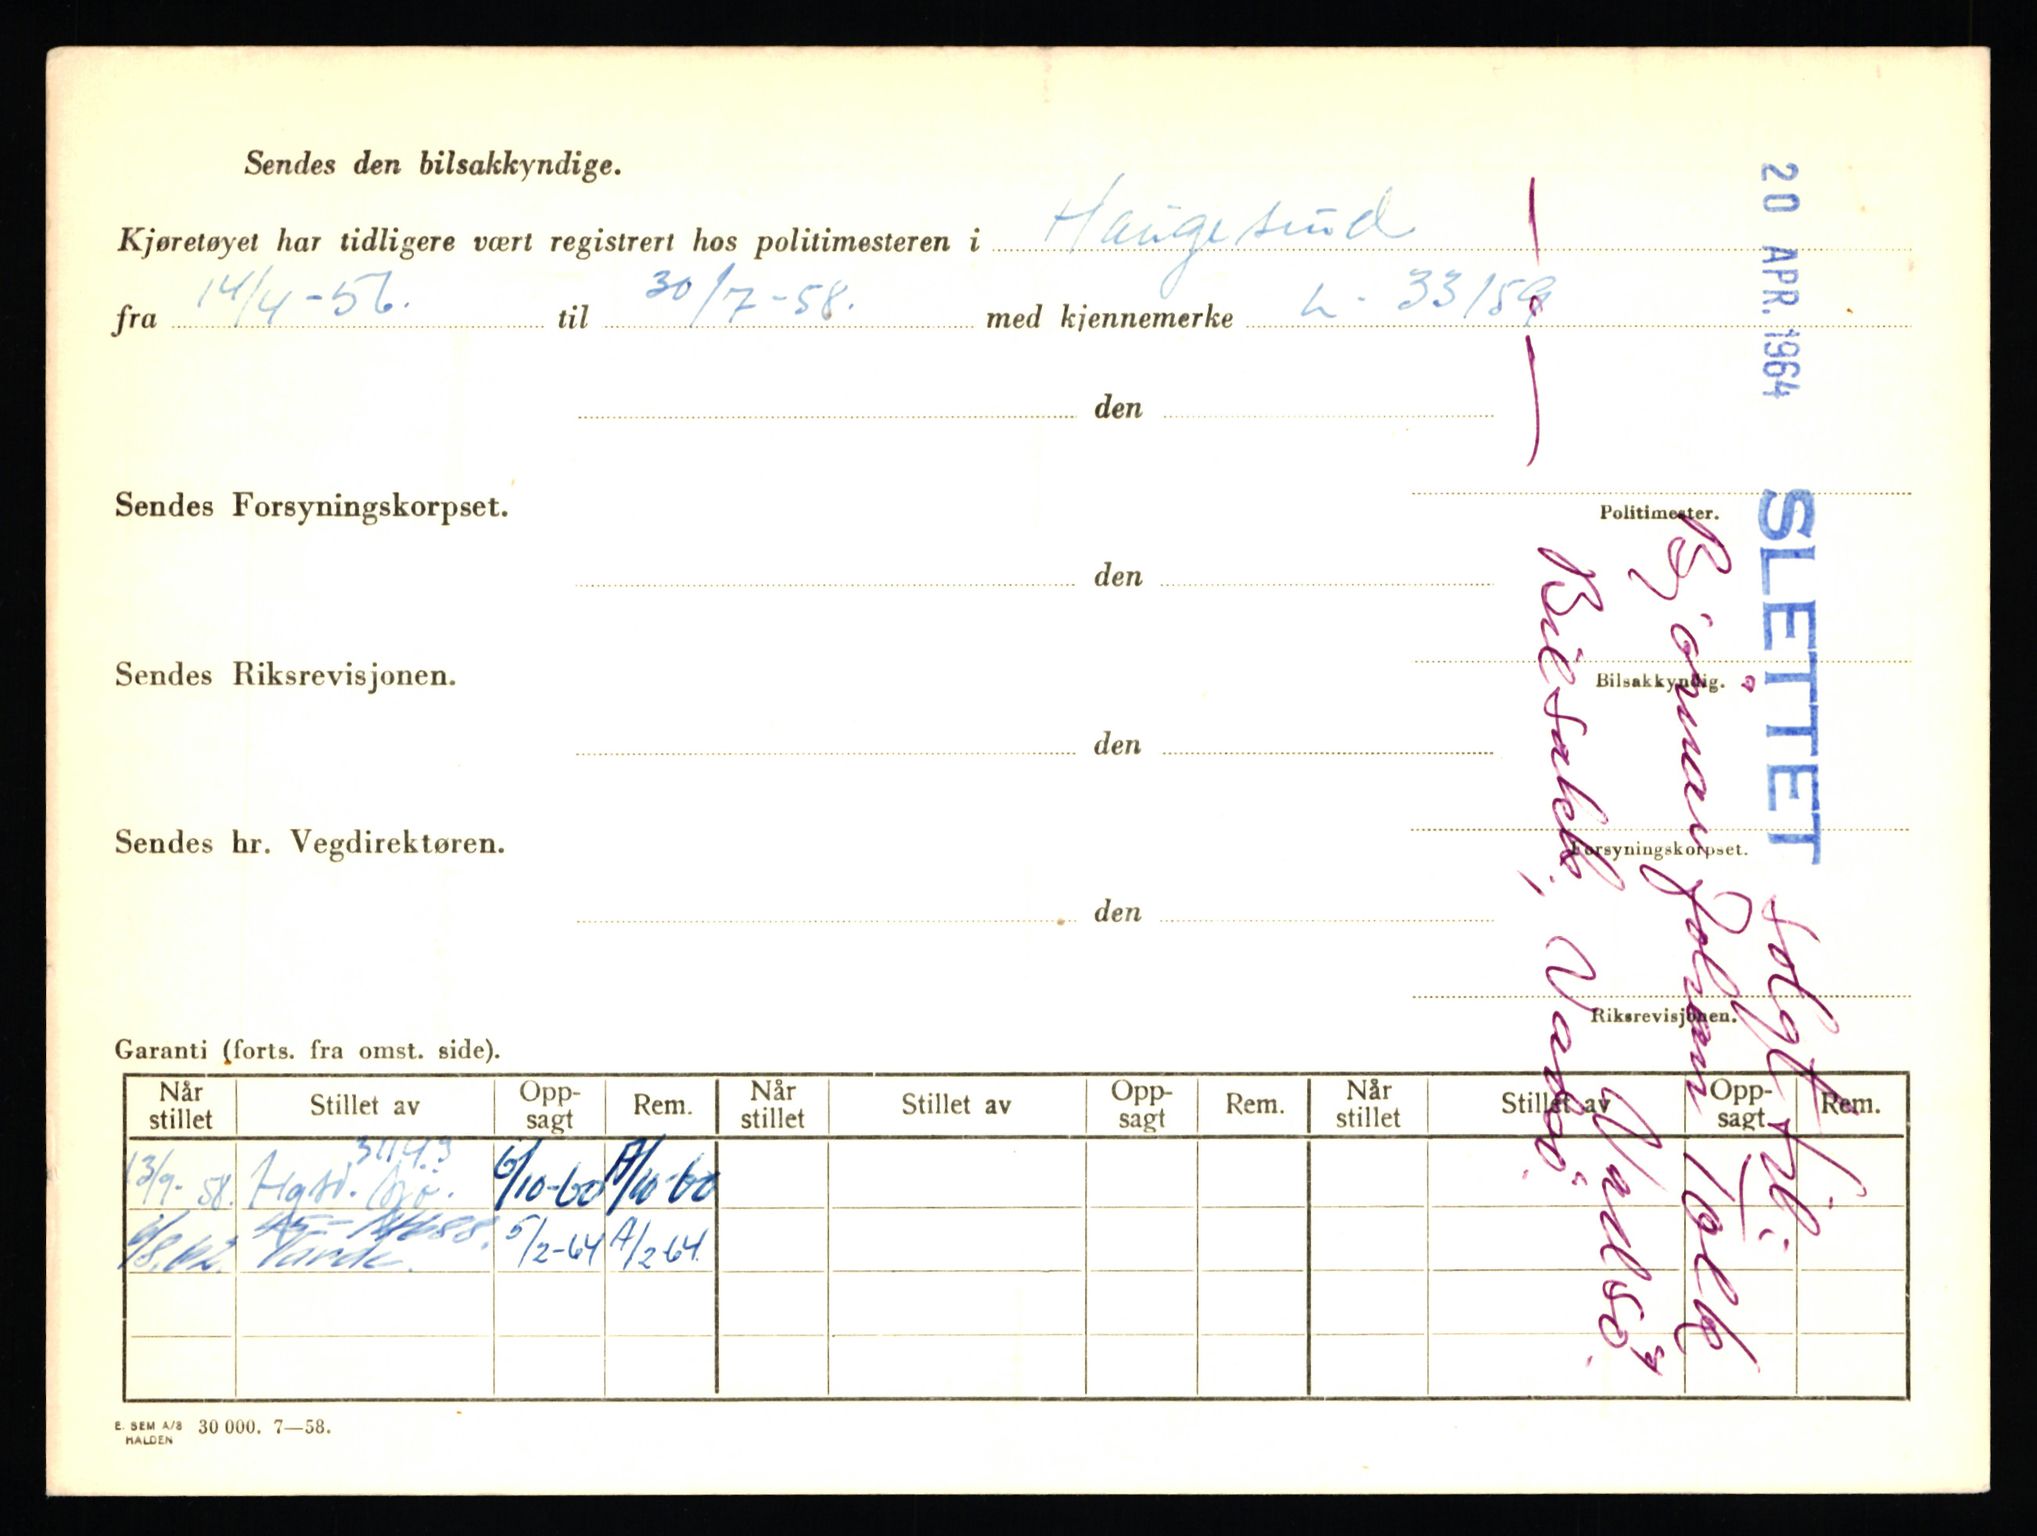 Sendes den bilsakkyndige.
Kjøretøyet har tidligere vært registrert hos politimesteren i Haugesund
fra 14/4-56. til 30/7-58. med kjennemerke L- 33159
den
Politimester.
Sendes Forsyningskorpset.
den
Bilsakkyndig.
Sendes Riksrevisjonen.
den
Forsyningskorpset.
Sendes hr. Vegdirektøren.
den
Riksrevisjonen.
20 APR. 1964 SLETTET
Solgt til:
Bjørnar Johan Tolk
Vadsø
Bilsakk, Vadsø.
Garanti (forts. fra omst. side).
Når stillet Stillet av Opp-sagt Rem. Når stillet Stillet av Opp-sagt Rem. Når stillet Stillet av Opp-sagt Rem.
13/9-58. Hgsd. 6/10-60 A/10-60
Varde. 5/2-64 A/2-64.
E. SEM A/S HALDEN 30 000. 7—58.